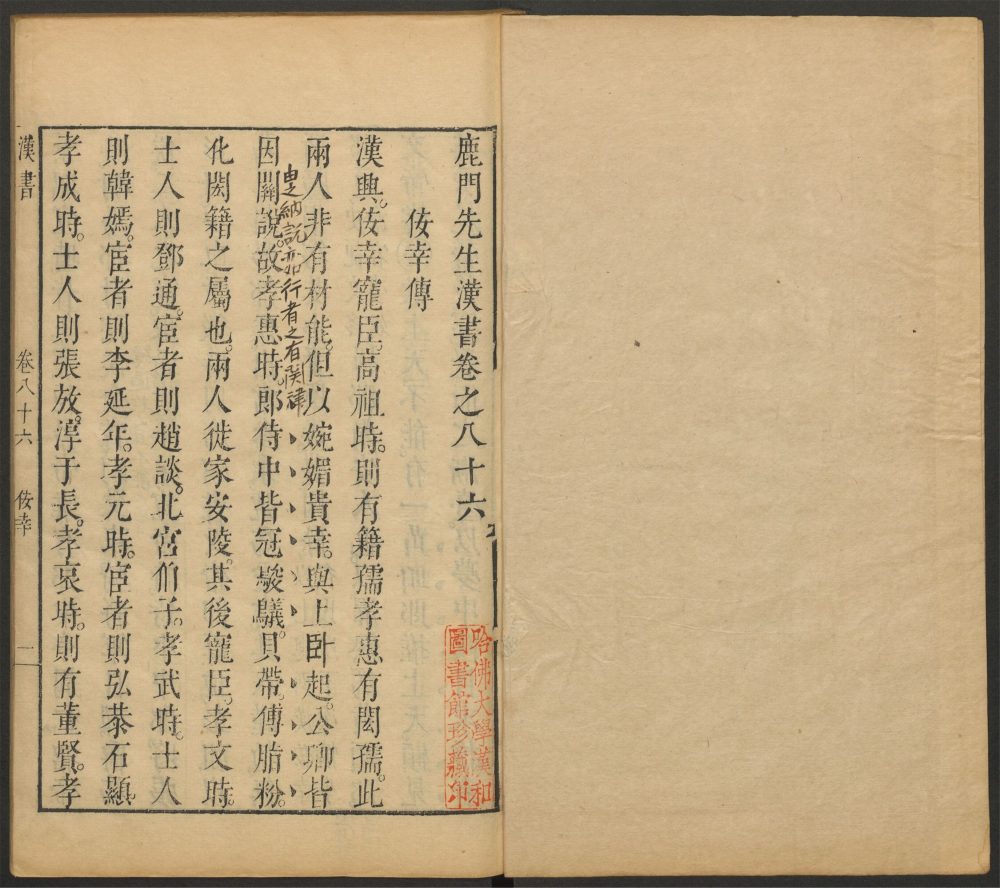 鹿門先生漢書卷之八十六
佞幸傳
漢興。佞幸寵臣。高祖時。則有籍孺。孝惠有閎孺。此
兩人非有材能。但以婉媚貴幸。與上卧起。公卿皆
因關說。故孝惠時。郎侍中皆冠鵔鸃。貝帶。傅脂粉。
化閎籍之屬也。兩人徙家安陵。其後寵臣。孝文時。
士人則鄧通。宦者則趙談。北宮伯子。孝武時。士人
則韓嫣。宦者則李延年。孝元時。宦者則弘恭石顯。
孝成時。士人則張放。淳于長。孝哀時。則有董賢。孝
納說亦行者之有
漢書
卷八十六
佞幸
一
哈佛大學漢和
圖書館珍藏印